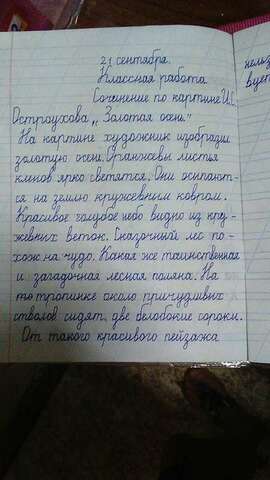 21 сентября.
Классная работа
Сочинение по картине И.С.
Остроухова „Золотая осень"
На картине художник изобразил
золотую осень. Оранжевы листья
клинов ярко светятся. Они осыпают-
ся на землю кружевным ковром.
Красивое голубое небо видно из кру-
жевных веток. Сказочный лес по-
хож на чудо. Какая же таинственная
и загадочная лесная поляна. На
то тропинке около причудливых
стволов сидят две белобокие сороки.
От такого красивого пейзажа
нельз